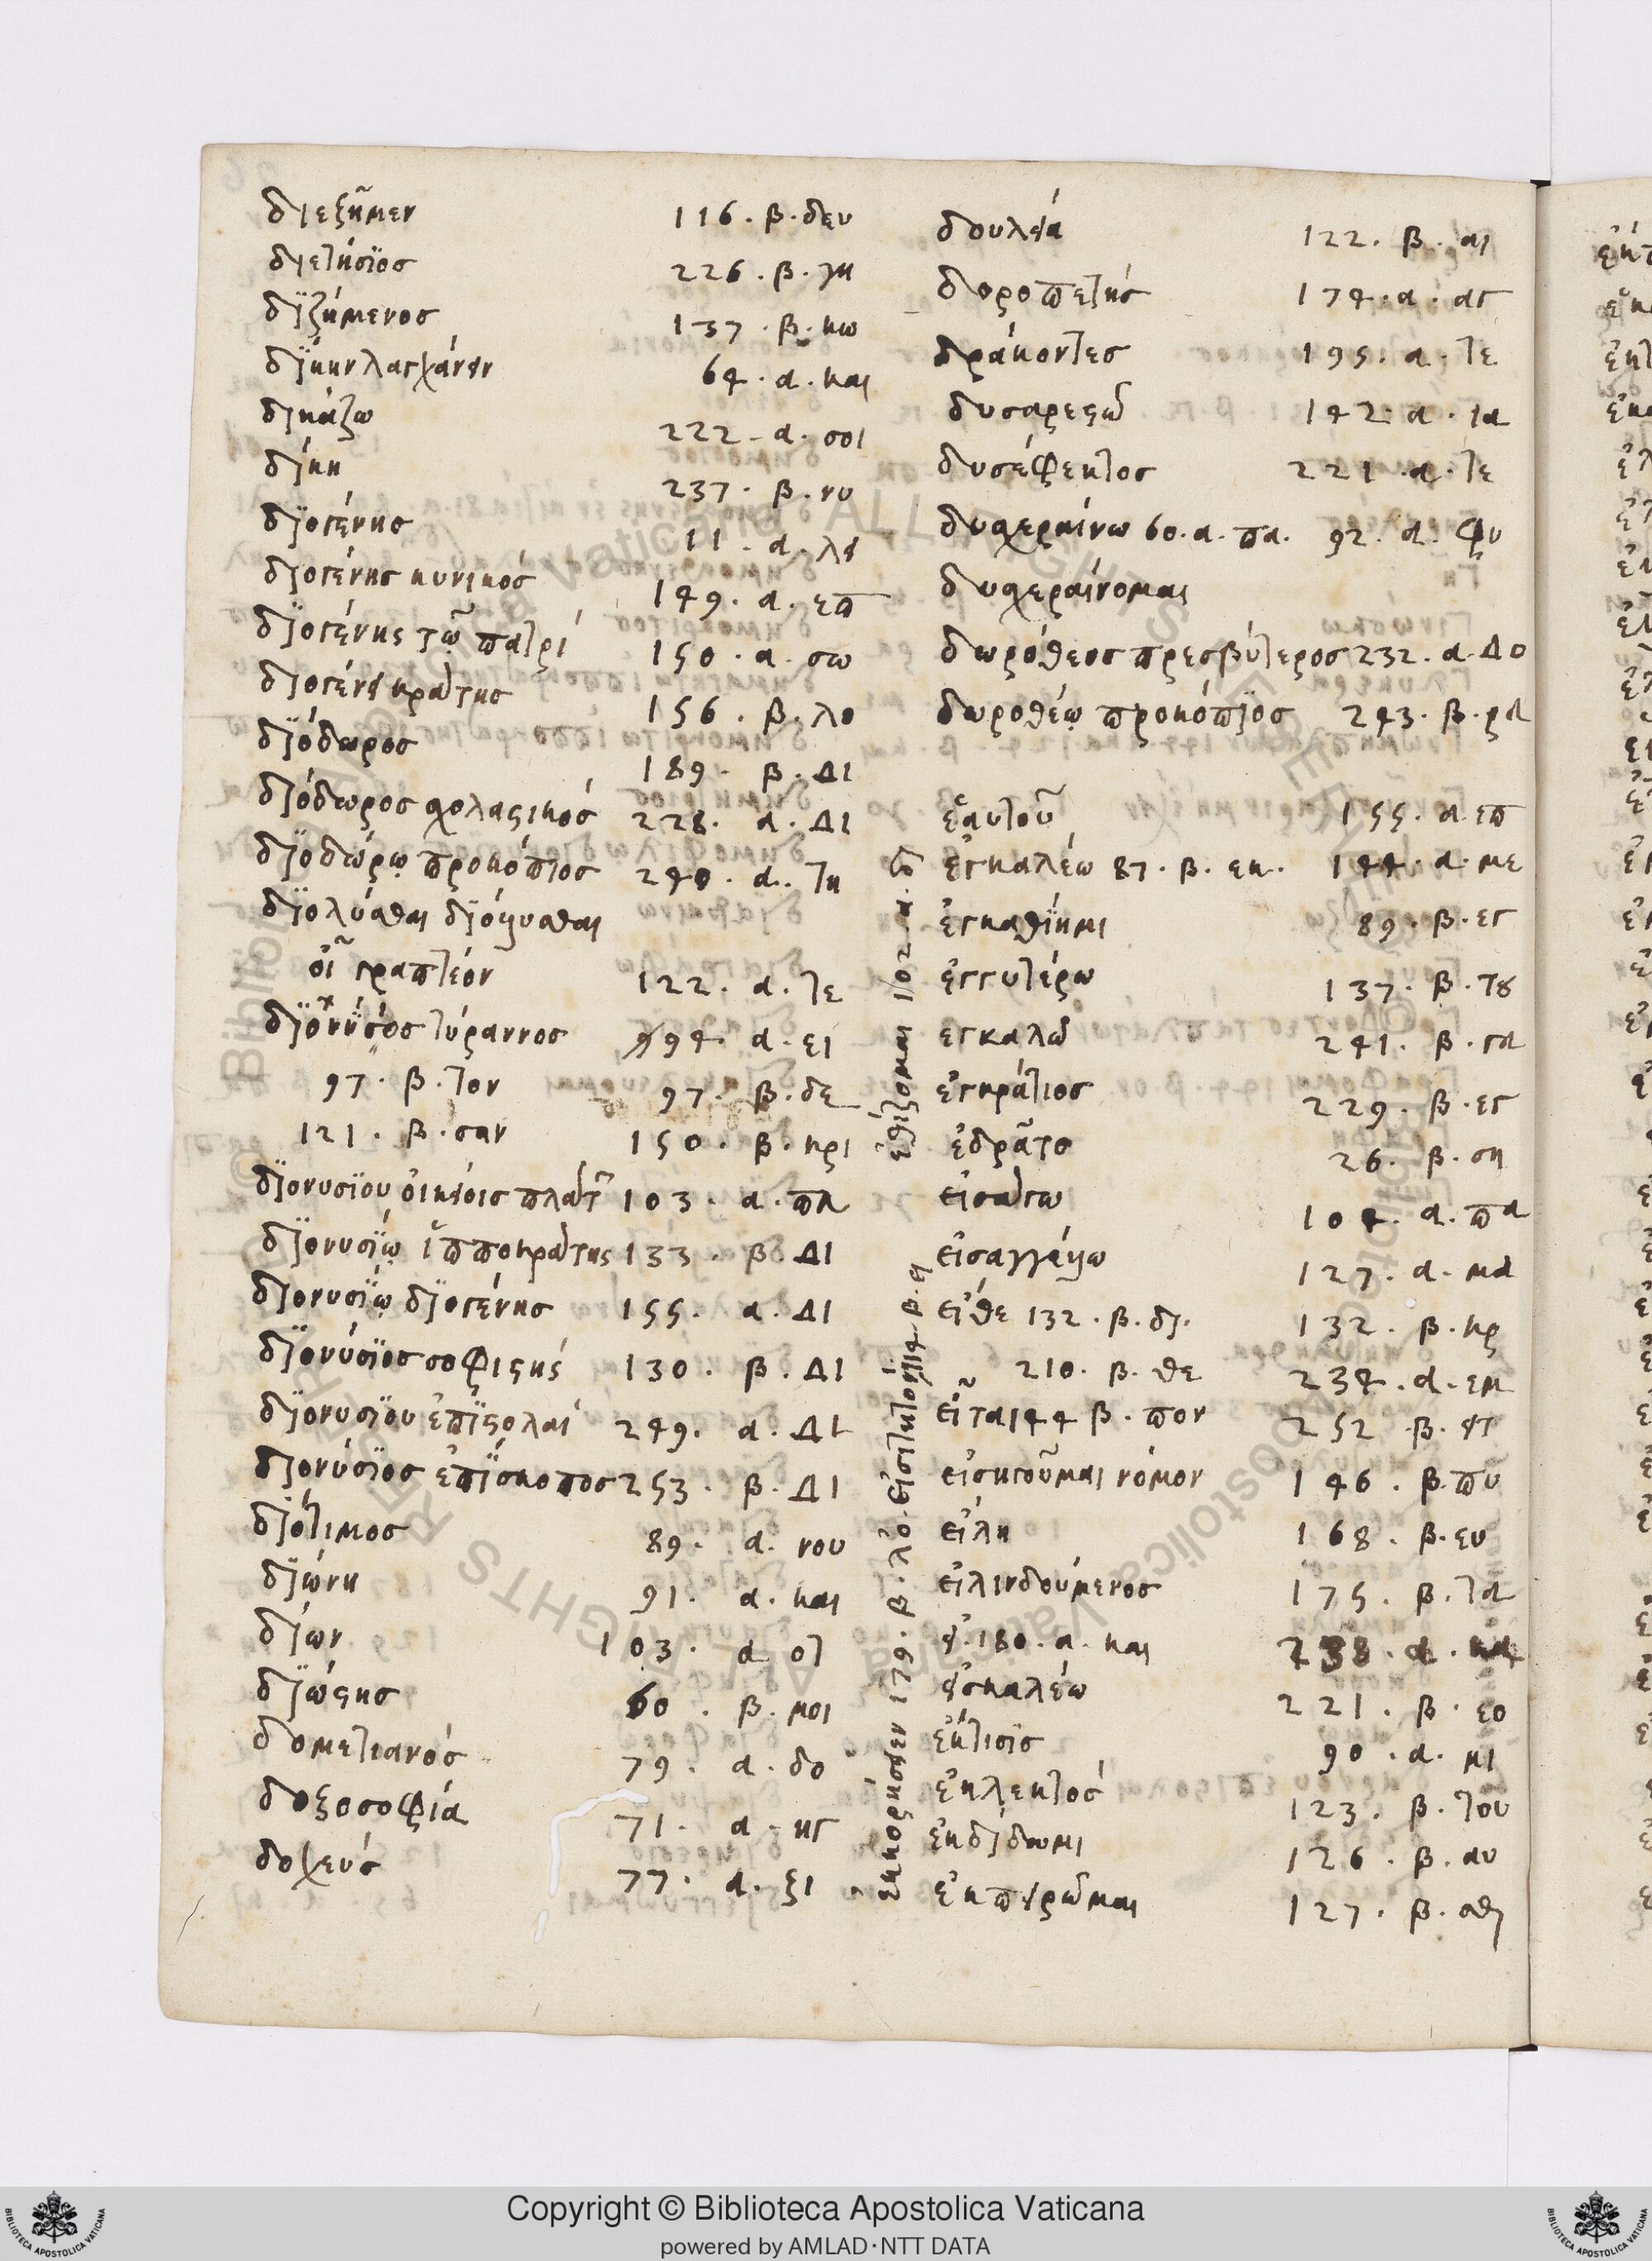 διεξῆμεν 116. β. δευ
διετήσϊος 226. β. λη
δϊζήμενος 137. β. κω
δϊκην λαγχάνειν 64. α. και
δικάζω 222. α. σοι
δίκη 237. β. νυ
δϊογένης 11. α. λει
διογένης κυνικός 149. α. επ
δϊογένης τῶ πατρί 150. α. σω
διογένει κράτης 156. β. λο
δϊόδωρος 189. β. Δι
διόδωρος σχολαστικός 228. α. Δι
δϊοδώρῳ προκόπιος 240. α. τη
δϊολύσθαι
οἷ γραπτέον 122. α. τε
τύραννος 94. α. ει
97. β. τον 97. β. δε
121. β. σαν 150. β. κρι
δϊονυσίου οἰκείοις πλάτ 103. α. πλ
δϊονυσίῳ ἱπποκράτης 133. β. Δι
δϊονυσίῳ δϊογένης 155. α. Δι
δϊονύσϊος σοφιστής 130. β. Δι
δϊονυσϊου ἐπϊστολαί 249. α. Δι
δϊονύσϊος ἐπίσκοπος 253. β. Δι
δϊότιμος 89. α. νου
δϊώνη 91. α. και
δίων 103. α οτ
δϊώστης 60. β. μοι
δομετιανός 79. α. δο
δοξοσοφία 71. α. κγ
δοχεύς 77. α. ξι
ἐθίζομαι 102. α.
ἐκκορήσειεν 179. β. λο. εἰσιτητον 114. β. η
δουλεία 122. β. αι
δοροπετής 174. α. αγ
δράκοντες 195. α. τε
δυσαρεστῶ 142. α. ια
δυσέφεκτος 221. α. τε
δυσχεραίνω 60. α. πα. 92. α. φυ
δυσχεραίνομαι
δωρόθεος πρεσβύτερος 232. α. Δο
δωροθέῳ προκόπϊος 243. β. ρα
ἑαυτοῦ 155. α. επ
ἐγκαλέω 87. β. εκ. 144. α. με
ἐγκαθίημι 89. β. εγ
ἐγγυτέρω 137. β. του
εγκαλῶ 241. β. γα
ἐγκράτιος 229. β. εγ
ἐδρᾶτο 26. β. ση
εἰσάγω 104. α. πα
εἰσαγγέλλω 127. α. μα
εἴθε 132. β. δι. 132. β. κρ
210. β. θε 234. α. εκ
εἶτα 144 β. πον 252. β. ειτ
εἰσηγοῦμαι νόμον 146. β. πυ
εἴλη 168. β. ευ
εἰλινδούμενος 175. β. τα
ει. 180. α. και 238. α. κα
εἰσκαλέω 221. β. εο
ἔκτισις 90. α. κι
ἐκλεκτός 123. β. του
ἐκδίδωμι 126. β. αυ
ἐκπειρῶμαι 127. β. σθη
Copyright © Biblioteca Apostolica Vaticana
powered by AMLAD·NTT DATA